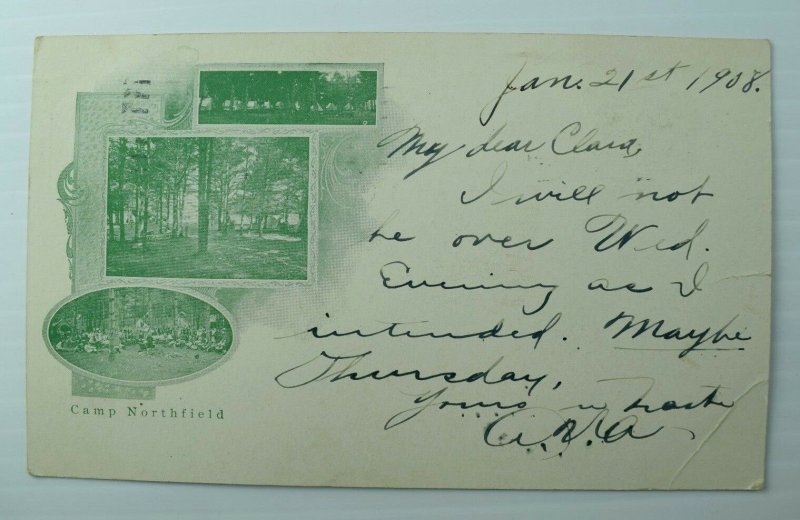 Jan. 21st 1908.
My dear Clara,
I will not
be over Wed.
Evening as I
intended. Maybe
Thursday,
Yours in haste
A.V.A
Camp Northfield